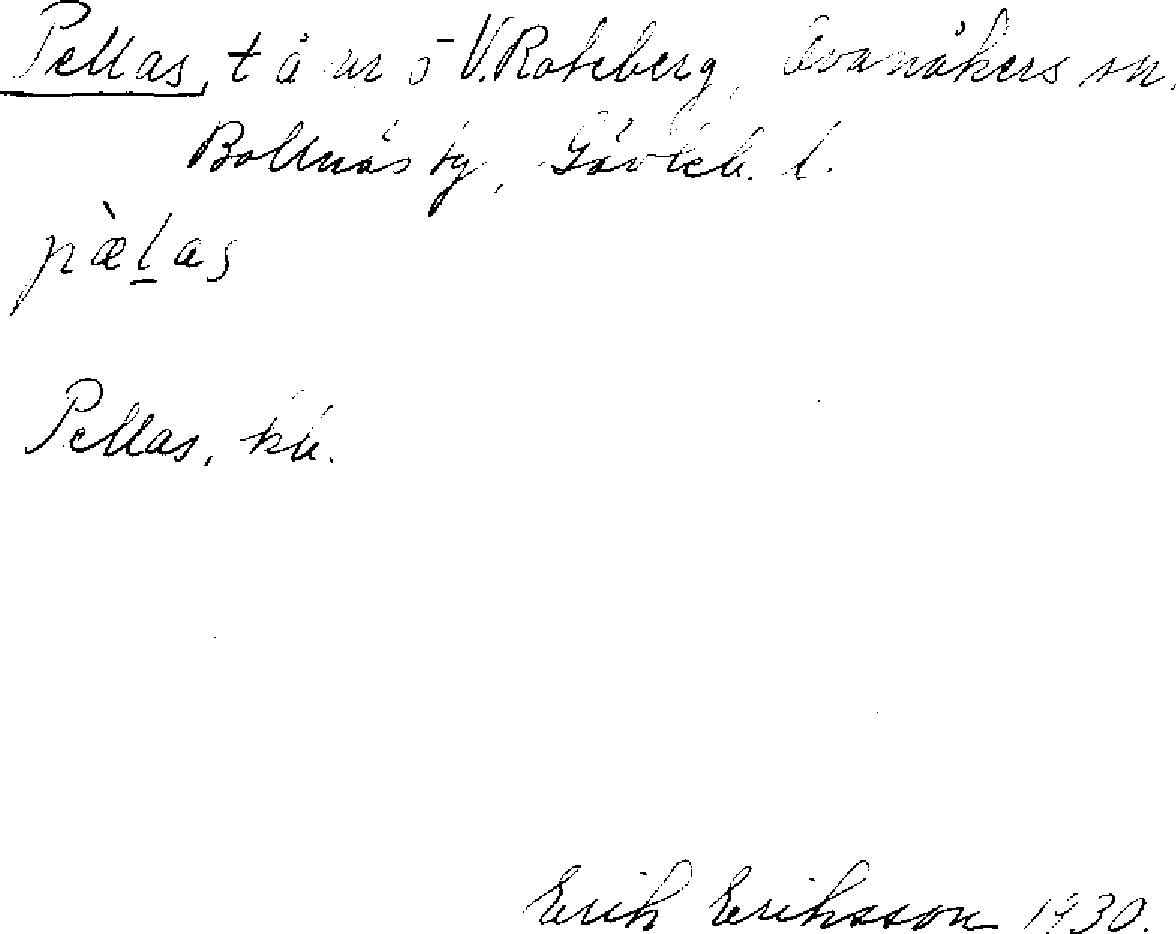 Pellas, t å nr 5 V. Roteberg, Ovanåkers sn.
Bollnäs tg, Gävleb. l.
pæ̀l̠as
Pellas, kk.
Erik Eriksson 1930.